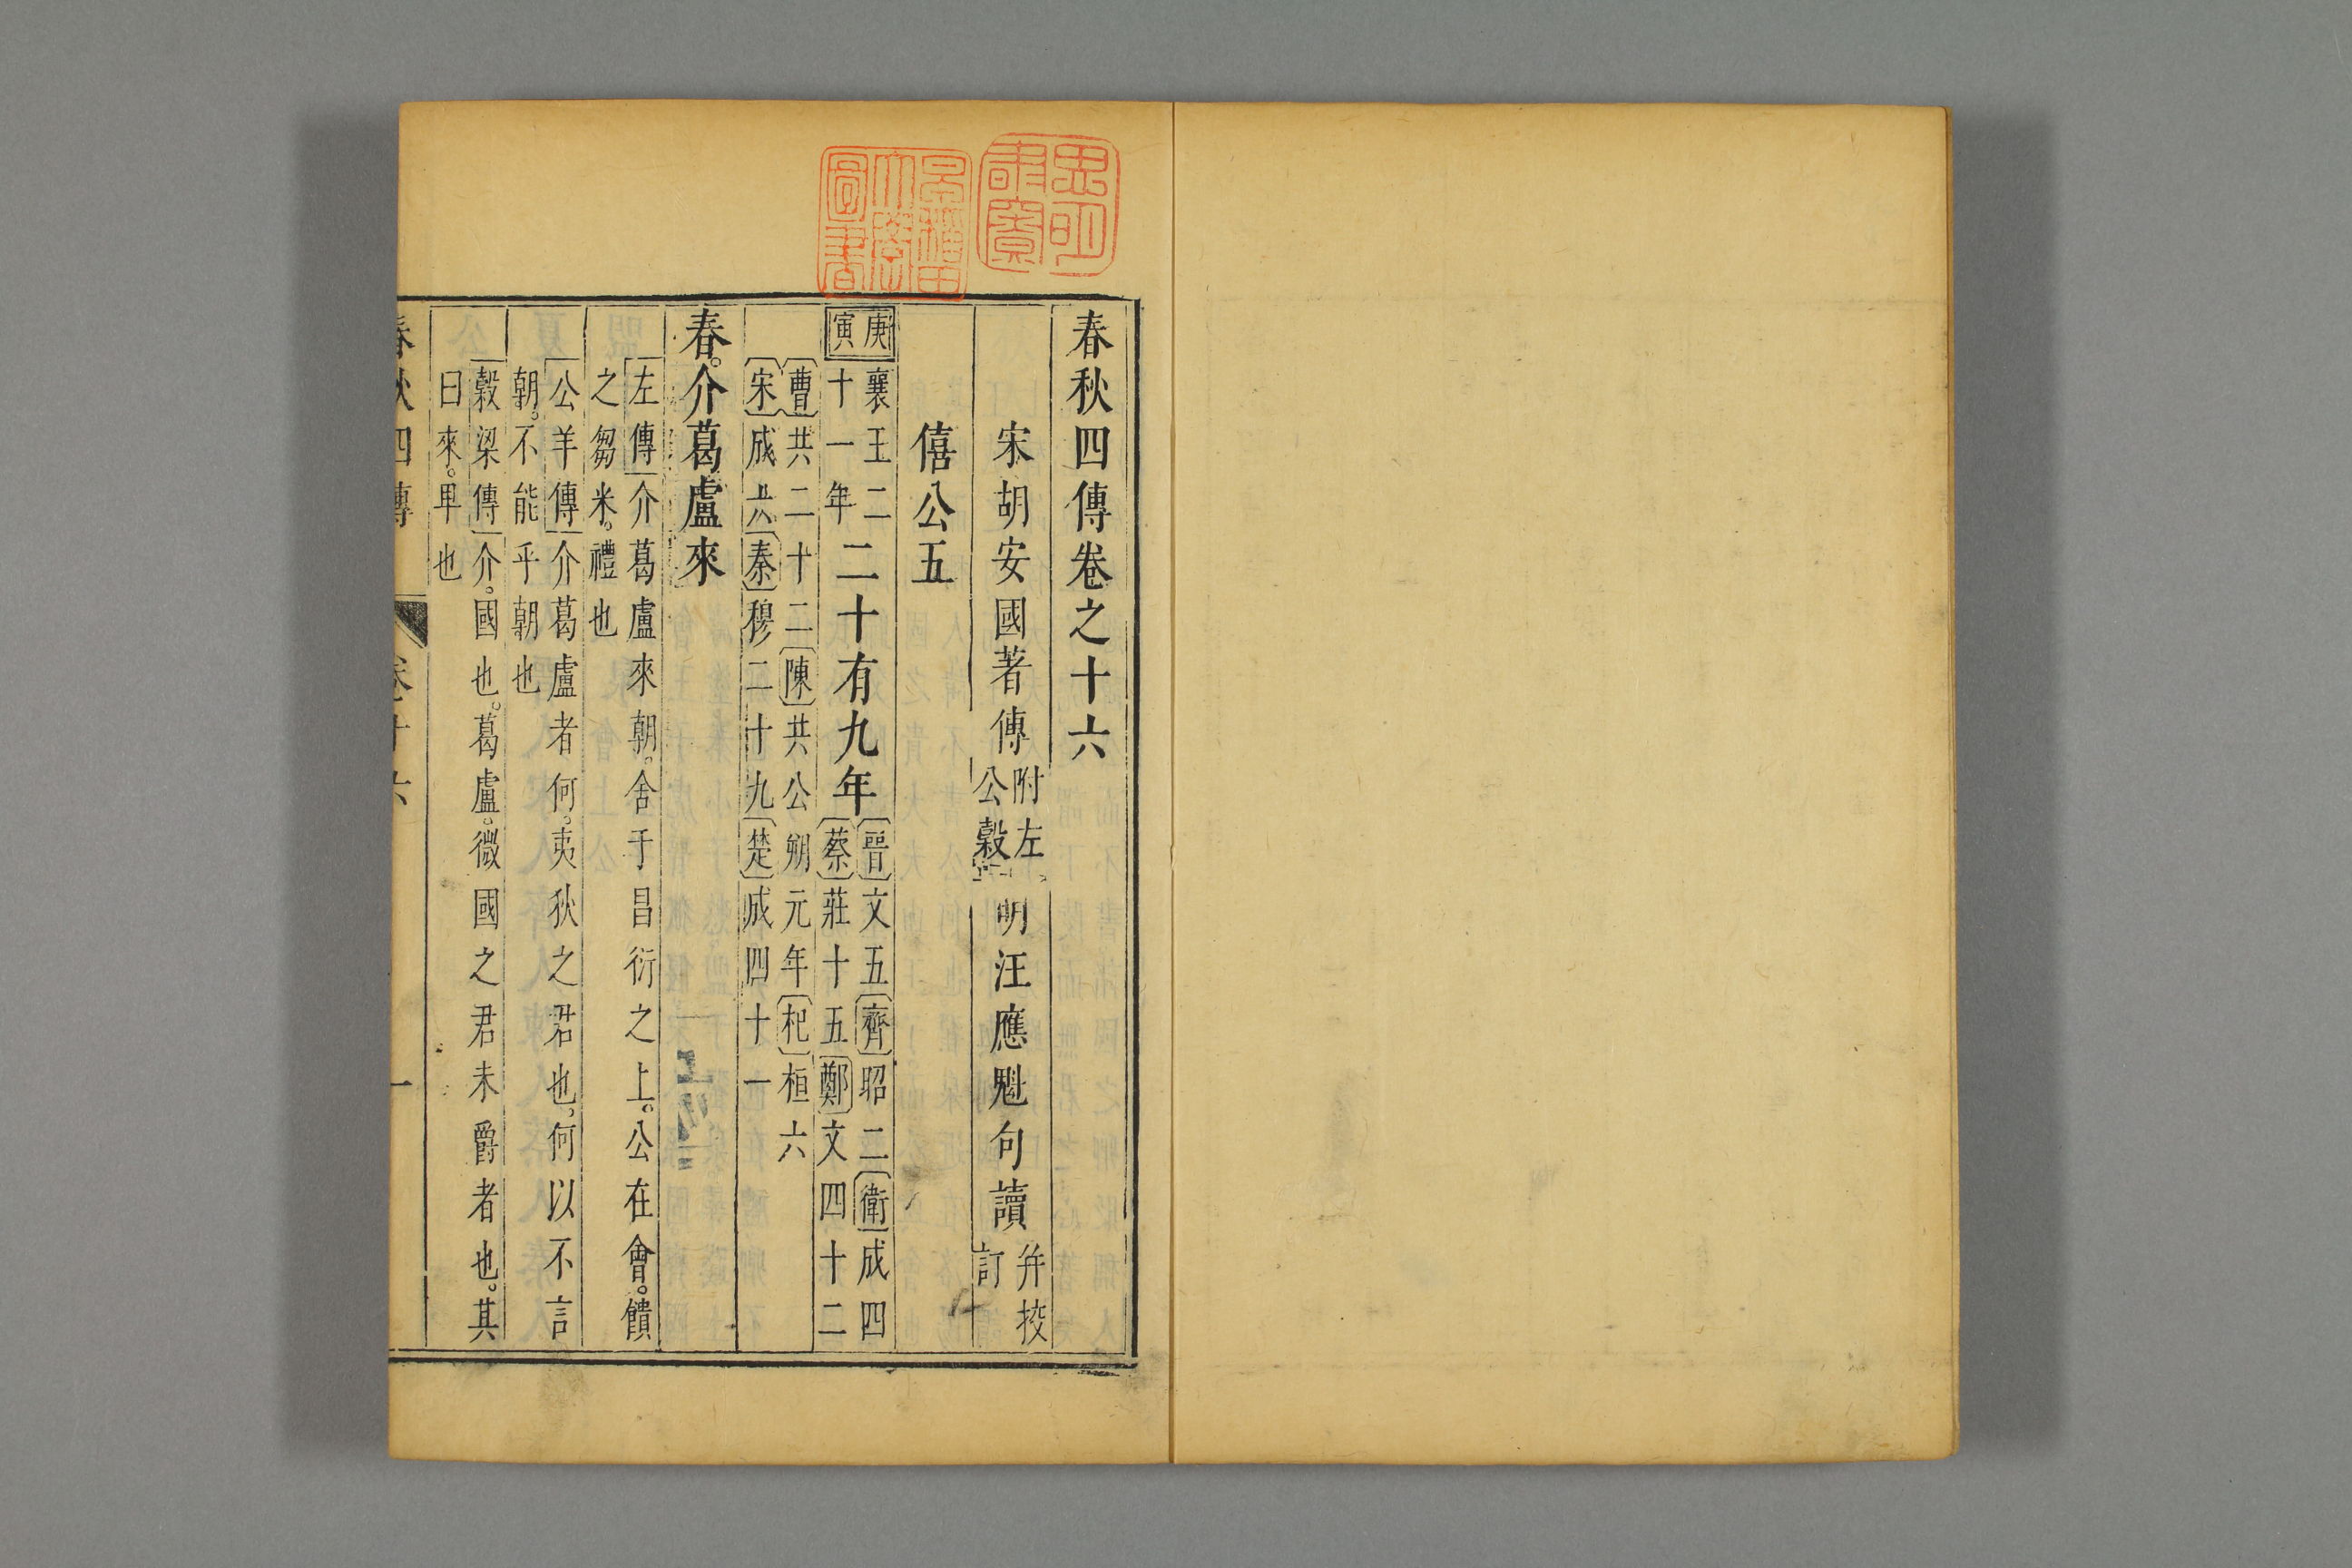 春秋四傳卷之十六
宋胡安國著傳附左公穀 明汪應魁句讀并挍訂
僖公五
庚寅襄王二十一年二十有九年晉文五齊昭二衛成四蔡莊十五鄭文四十二
曹共二十二陳共公朔元年杞桓六宋成六秦穆二十九楚成四十一
春。介葛盧來
左傳介葛盧來朝。舍于昌衍之上。公在會。饋
之芻米。禮也
公羊傳介葛盧者何。夷狄之君也。何以不言
朝。不能乎朝也
穀梁傳介。國也。葛盧。微國之君未爵者也。其
曰來。卑也
春秋四傳 卷十六 一
早稻田大學圖書